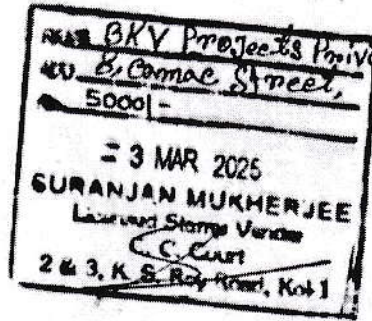 BKV Projects Priv
8, Camac Street,
5000/-
= 3 MAR 2025
SURANJAN MUKHERJEE
Licensed Stamp Vendor
C. C. Court
2 & 3, K. S. Roy Road, Kol-1